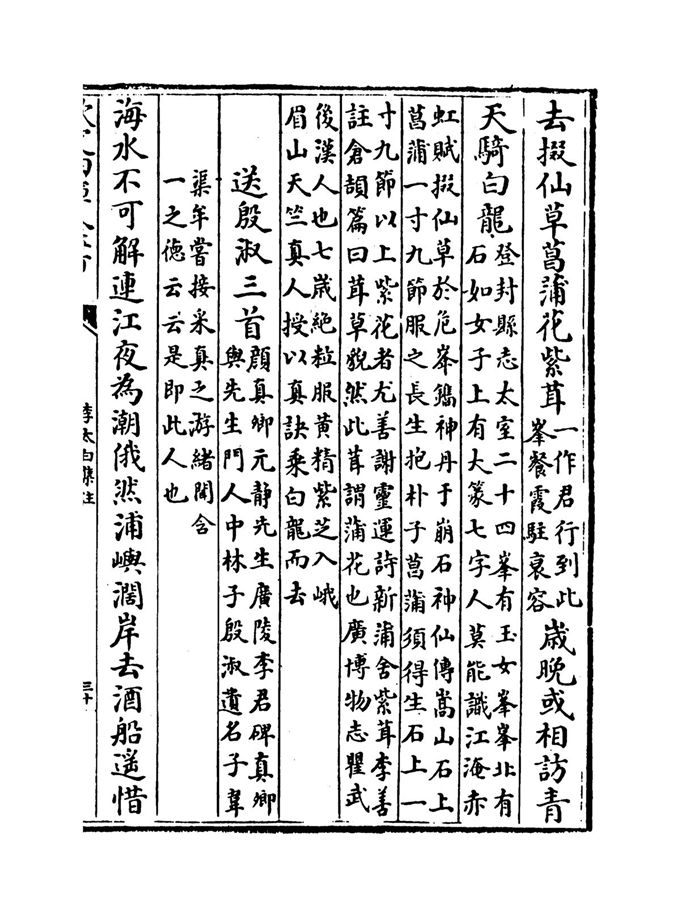 去掇仙草菖蒲花紫茸一作君行到此
峯餐霞駐衰容歲晚或相訪青
天騎白龍登封縣志太室二十四峯有玉女峯峯北有
石如女子上有大篆七字人莫能識江淹赤
虹賦掇仙草於危峯鐫神丹于崩石神仙傳嵩山石上
菖蒲一寸九節服之長生抱朴子菖蒲須得生石上一
寸九節以上紫花者尤善謝靈運詩新蒲含紫茸李善
註倉頡篇曰茸草貌然此茸謂蒲花也廣博物志瞿武
後漢人也七歲絶粒服黄精紫芝入峨
眉山天竺真人授以真訣乘白龍而去
送殷淑三首顔真卿元静先生廣陵李君碑真卿
與先生門人中林子殷淑遺名子韋
渠牟嘗接采真之游緒聞含
一之德云云是即此人也
海水不可解連江夜為潮俄然浦嶼濶岸去酒船遥惜
李太白集注
三十